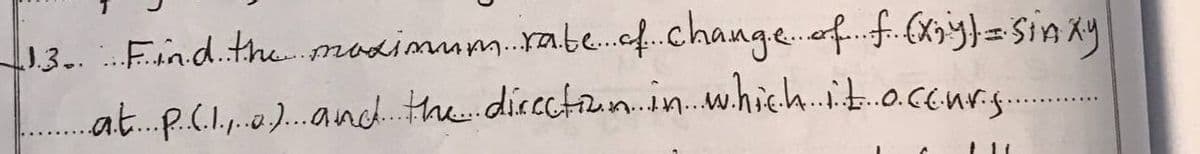 13. Find the maximum rate of change of f(x,y)=sin xy
at p(1,0) and the direction in which it occurs